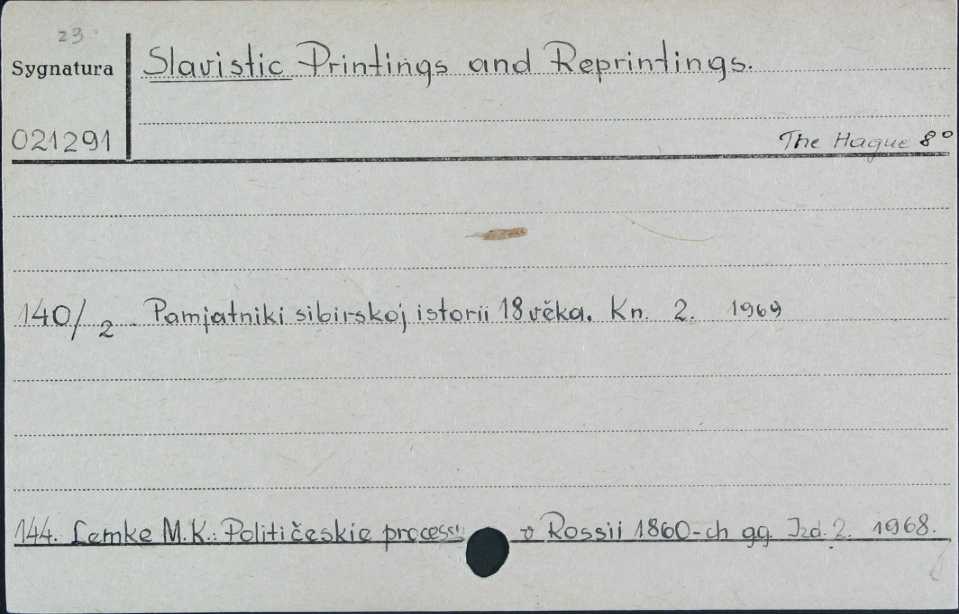 23
Sygnatura
Slavistic Printings and Reprintings.
021291
The Hague 8°
140/2 Pamjatniki sibirskoj istorii 18 věka. Kn. 2. 1969
144. Lemke M.K.: Političeskie processy v Rossii 1860-ch gg. Izd. 2. 1968.